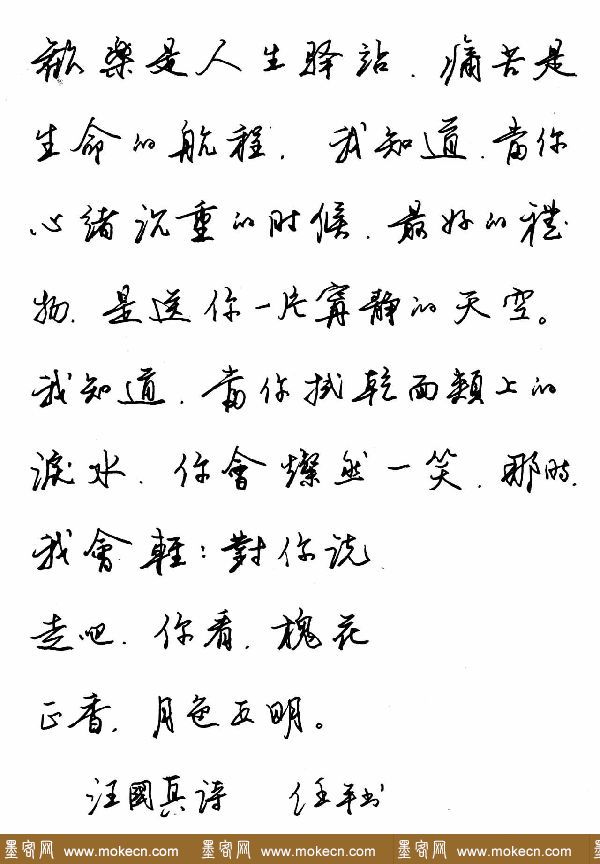 歡樂是人生驿站.痛苦是
生命的航程.我知道.當你
心绪沉重的时候.最好的禮
物.是送你一片寧静的天空。
我知道.當你拭乾面頰上的
淚水.你會燦然一笑.那时.
我會輕:對你说
走吧.你看.槐花
正香.月色正明。
汪國真诗 任平书
墨客网 www.mokecn.com 墨客网 www.mokecn.com 墨客网 www.mokecn.com